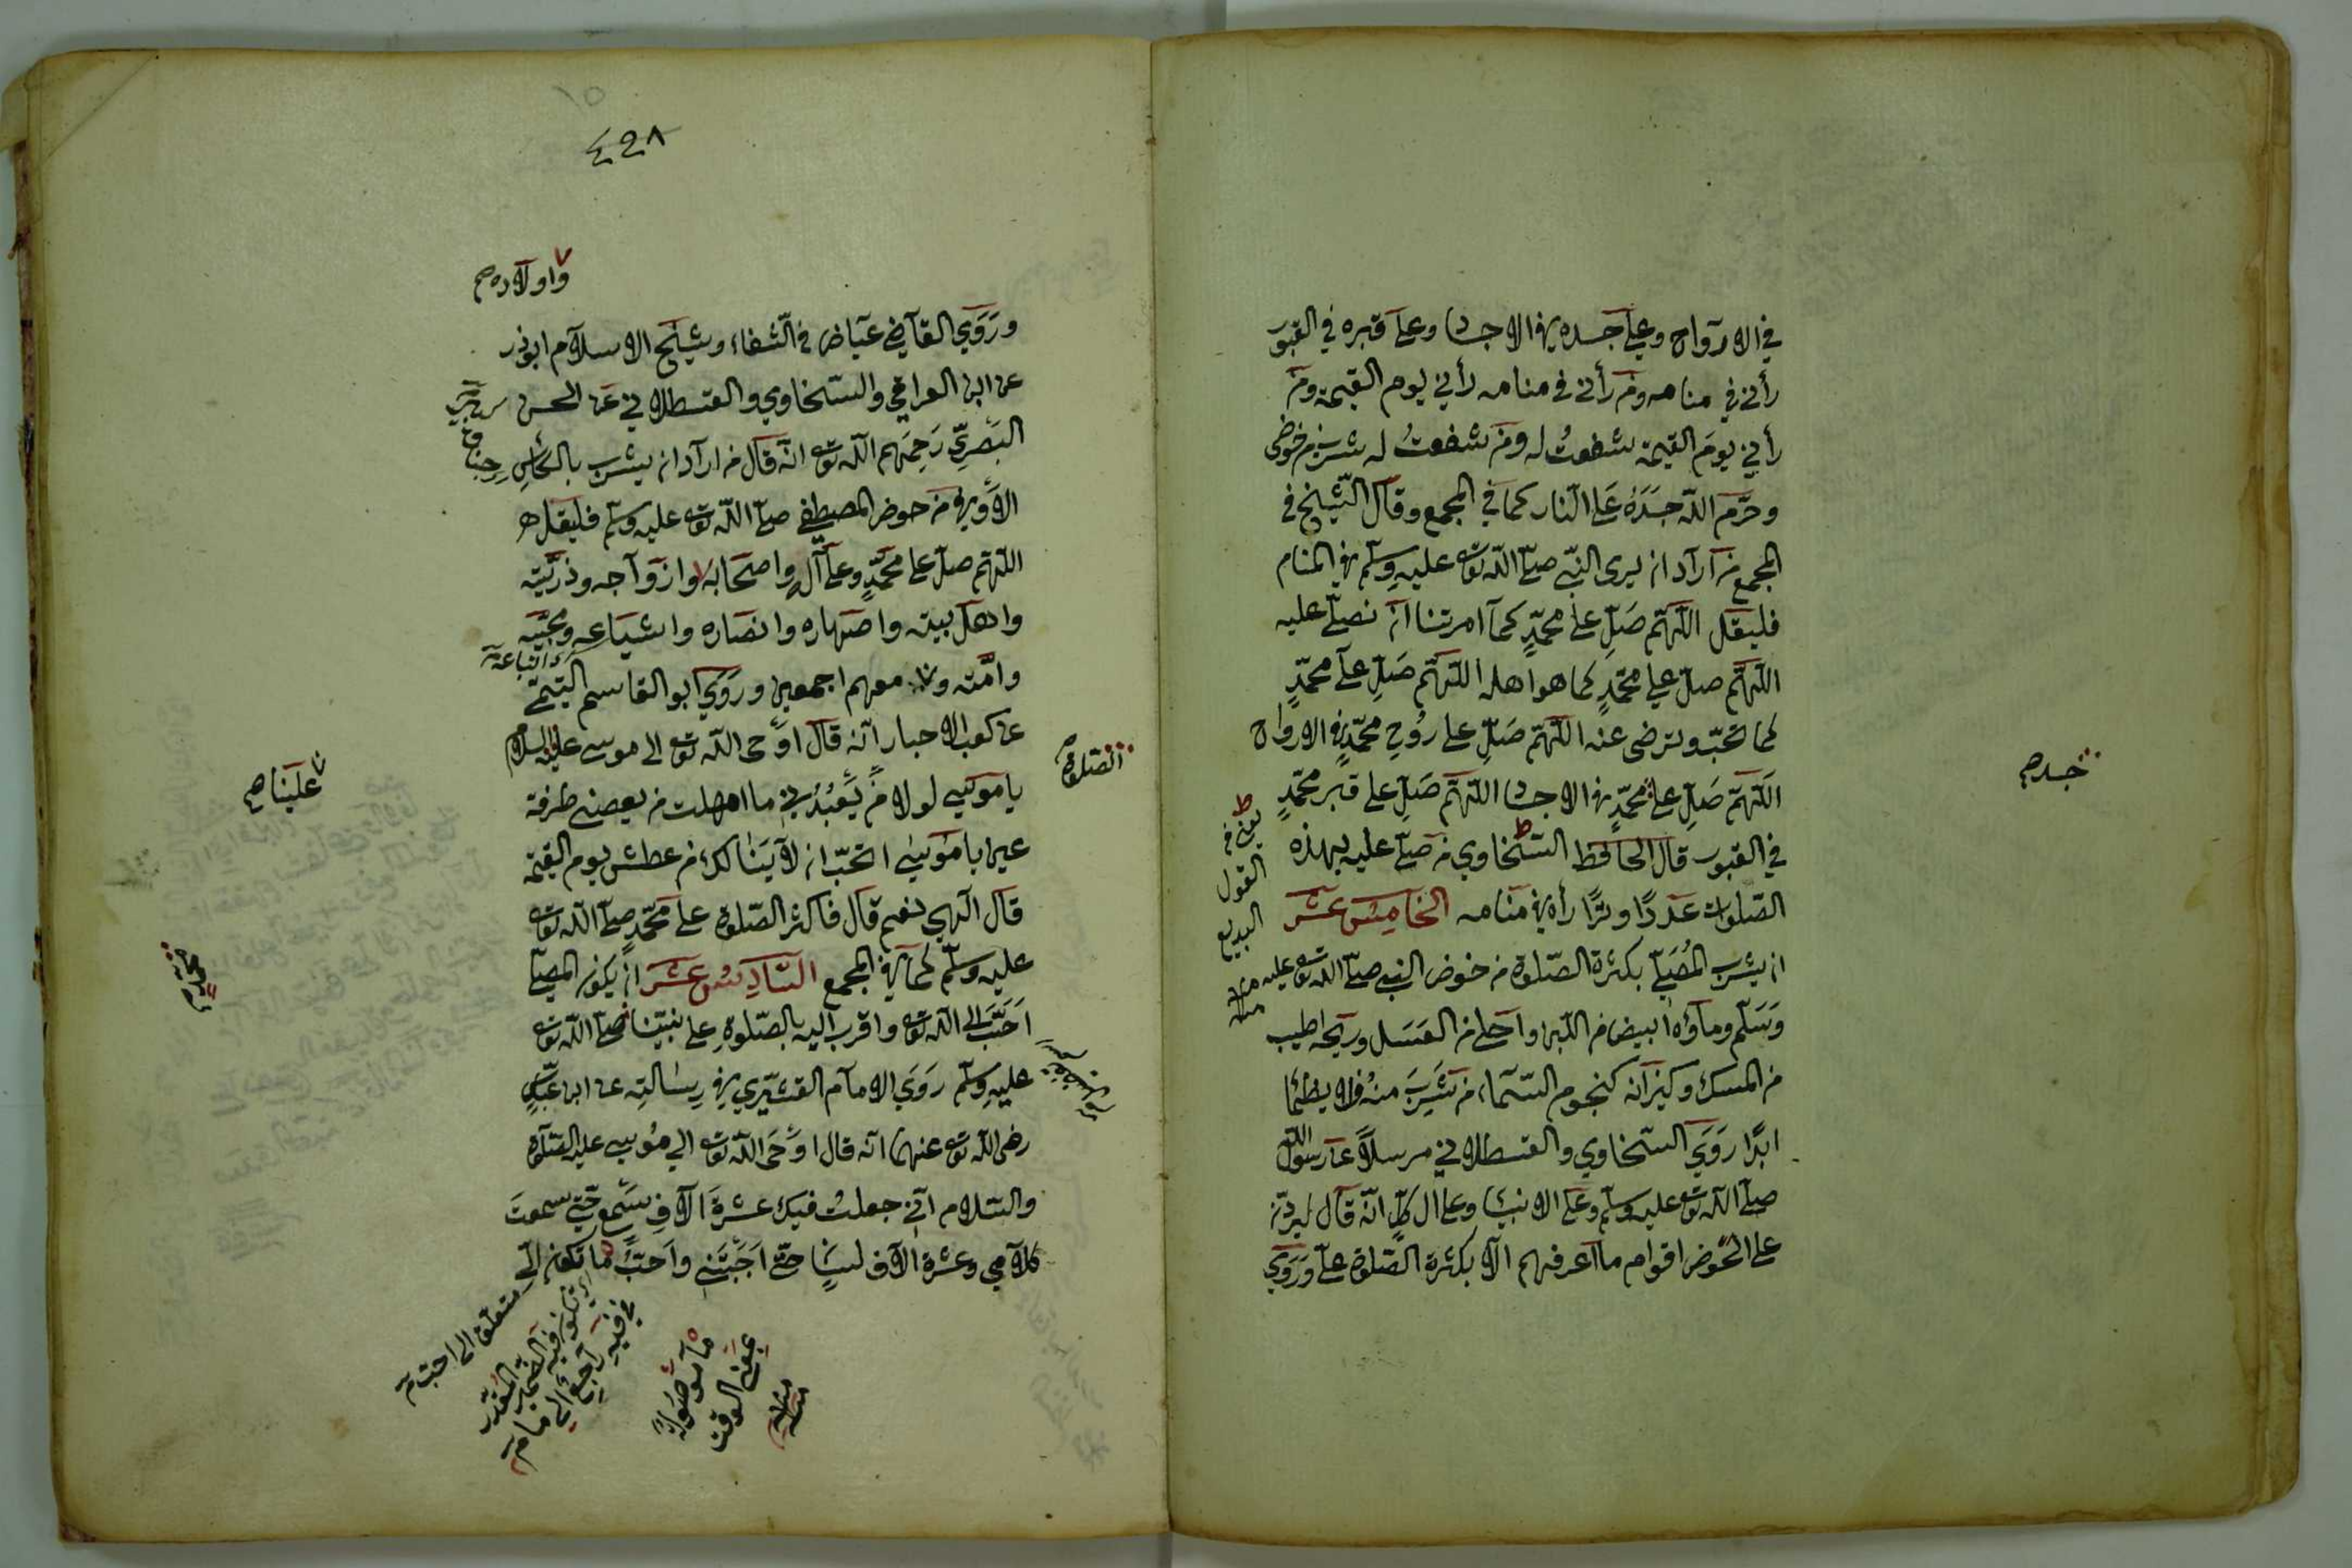 في الارواح وعلى جسده في الاجساد وعلى قبره في القبور
رأني في منامه ومن رأني في منامه رأني يوم القيمة ومن
رأني يوم القيمة شفعتُ له ومن شفعتُ له شرب من حوضي
وحرّم الله جسَدَهُ على النّار كما في المجمع وقال الشّيخ في
المجمع من أراد ان يرى النبيّ صلّى الله تعالى عليه وسلّم في المنام
فليقل اللّهمّ صَلِّ على محمّدٍ كما امرتنا ان نصلّي عليه
اللّهمّ صلّ على محمّدٍ كما هو اهله اللّهمّ صَلِّ على محمّدٍ
كما تحبّ وترضى عنه اللّهمّ صَلِّ على رُوحِ محمّدٍ في الارواح
اللّهمّ صَلِّ على محمّدٍ في الاجساد اللّهمّ صَلِّ على قبر محمّدٍ
جسد صح
في القبور قال الحافظ السّخاوي من صلّى عليه بهذه
يعني في
القول
البديع
منه
الصّلوات عددًا وترًا رأه في منامه الخامِسَ عَشَرَ
ان يشرب المُصَلّي بكثرة الصّلوة من حوض النبي صلّى الله تعالى عليه
وَسَلّم وماؤه أبيض من اللّبن واحلى من العَسَل وريحه اطيب
من المسك وكيزانه كنجوم السّماء من شَرِبَ منهُ فلا يظمأ
ابدًا رَوَى السّخاوي والقسطلاني مرسلاً عن رسول الله
صلّى الله تعالى عليه وسلّم وعلى الانبيا وعلى ال كلٍّ انّه قال ليردنّ
على الحَوض اقوام ما اعرفهم الّا بكثرة الصّلوة عليّ ورَوَى
٤٢٨
واولاده صح
ورَوَى القاضي عيَاض في الشّفاء وشيْخ الاسلام ابو ذر
عن ابن العراقي والسّخاوي والقسطلاني عن الحسن
البَصْرِيّ رَحِمَهم الله تعالى انّه قال من اراد ان يشرب بالكأسِ
الأوفى من حوض المصطفى صلّى الله تعالى عليه وسلّم فليقل
اللّهمّ صلّ على محمّدٍ وعلى آله واصحابه وازواجه وذرّيّته
واهل بيته واصهاره وانصاره واشياعه ومحبّيه
واتباعه
وامّته و معهم اجمعين ورَوَى ابو القاسم التّيمي
علينا صح
عن كعب الاحبار انّه قال اوْحى الله تعالى الى موسى عليه السلام
الصّلوة صح
يا موسى لولا من يَعْبُدُني ما امهلت من يعصني طرفة
عين يا مُوسى اتحبّ ان لا يَنَالَك من عطش يوم القيمة
قال الهي نعم قال فاكثر الصّلوة على محمّدٍ صلّى الله تعالى
عليه وسلّم كما في المجمع السَّادِسُ عَشَرَ ان يكون المصلّي
احَبَّ الى الله تعالى واقرب اليه بالصّلوةِ على نبيّنا صلّى الله تعالى
محمّد صح
عليه وسلّم رَوَى الامام القشيري في رسَالتِه عن ابن عبّاسٍ
رضي الله تعالى عنهما انّه قال اوْحَى الله تعالى الى مُوسى عليه الصّلوة
والسّلام انّي جعلتُ فيك عشرةَ الآفِ سَمْعٍ حتى سمعتَ
كلامي وعشرة الآف لسَانٍ حتّى اجَبْتَني واَحَبُّ ما تكون اليّ
متعلق الى احب
اي تكون فيه الضّمير المقدّر
في فيه راجع الى ما
ما موصولة
بمعنى الوقت
منه